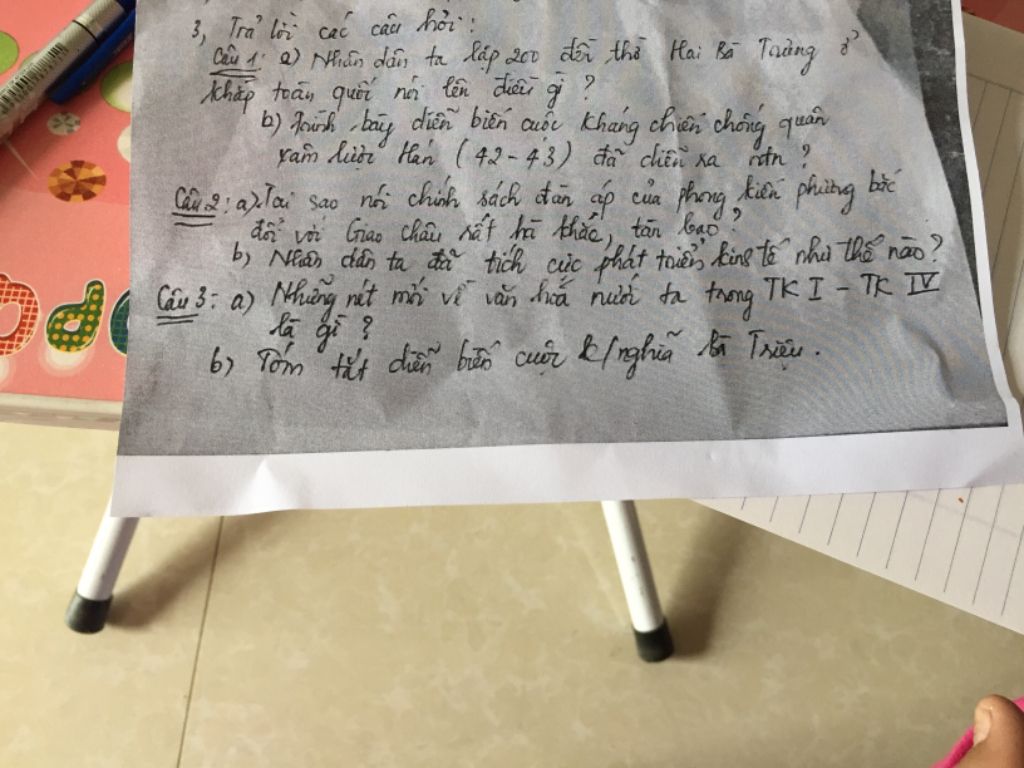 3, Trả lời các câu hỏi:
Câu 1: a) Nhân dân ta lập 200 đền thờ Hai Bà Trưng ở
khắp toàn quốc nói lên điều gì?
b) Trình bày diễn biến cuộc kháng chiến chống quân
xâm lược Hán (42-43) đã diễn ra ntn?
Câu 2: a) Tại sao nói chính sách đàn áp của phong kiến phương bắc
đối với Giao châu rất hà khắc, tàn bạo?
b) Nhân dân ta đã tích cực phát triển kinh tế như thế nào?
Câu 3: a) Những nét mới về văn hoá nước ta trong TK I - TK IV
là gì?
b) Tóm tắt diễn biến cuộc k/nghĩa Bà Triệu.